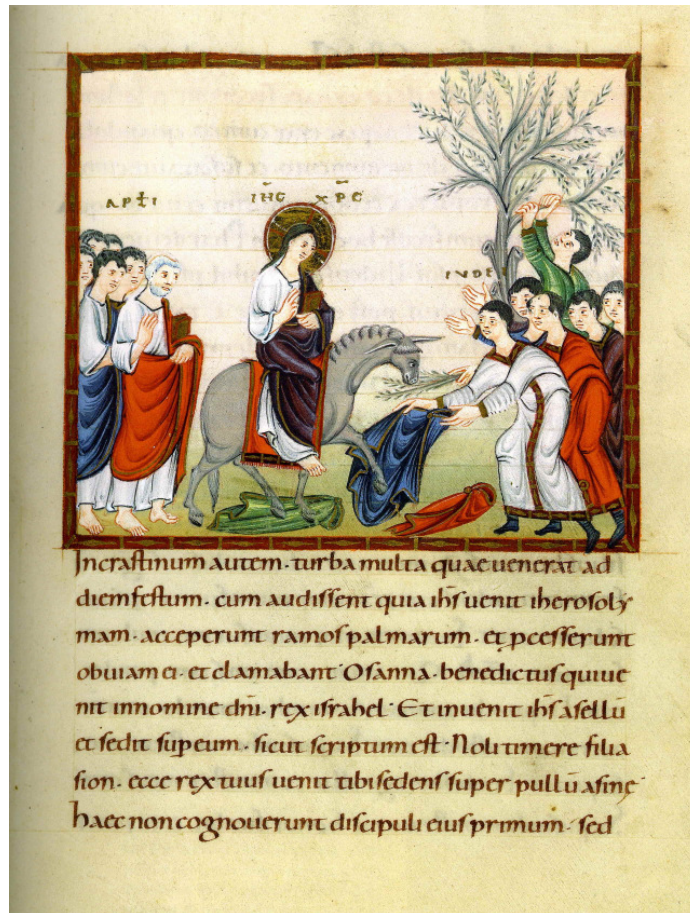 APŁI
IHC XPC
IUDEI
Incrastinum autem · turba multa quae uenerat ad
diem festum · cum audissent quia ihs uenit iherosoly
mam · acceperunt ramos palmarum · et pcesserunt
obuiam ei · et clamabant · Osanna · benedictus qui ue
nit innomine dni · rex israhel · Et inuenit ihs asellū
et sedit sup eum · sicut scriptum est · Noli timere filia
sion · ecce rex tuus uenit tibi sedens super pullū asinę
haec non cognouerunt discipuli eius primum · sed